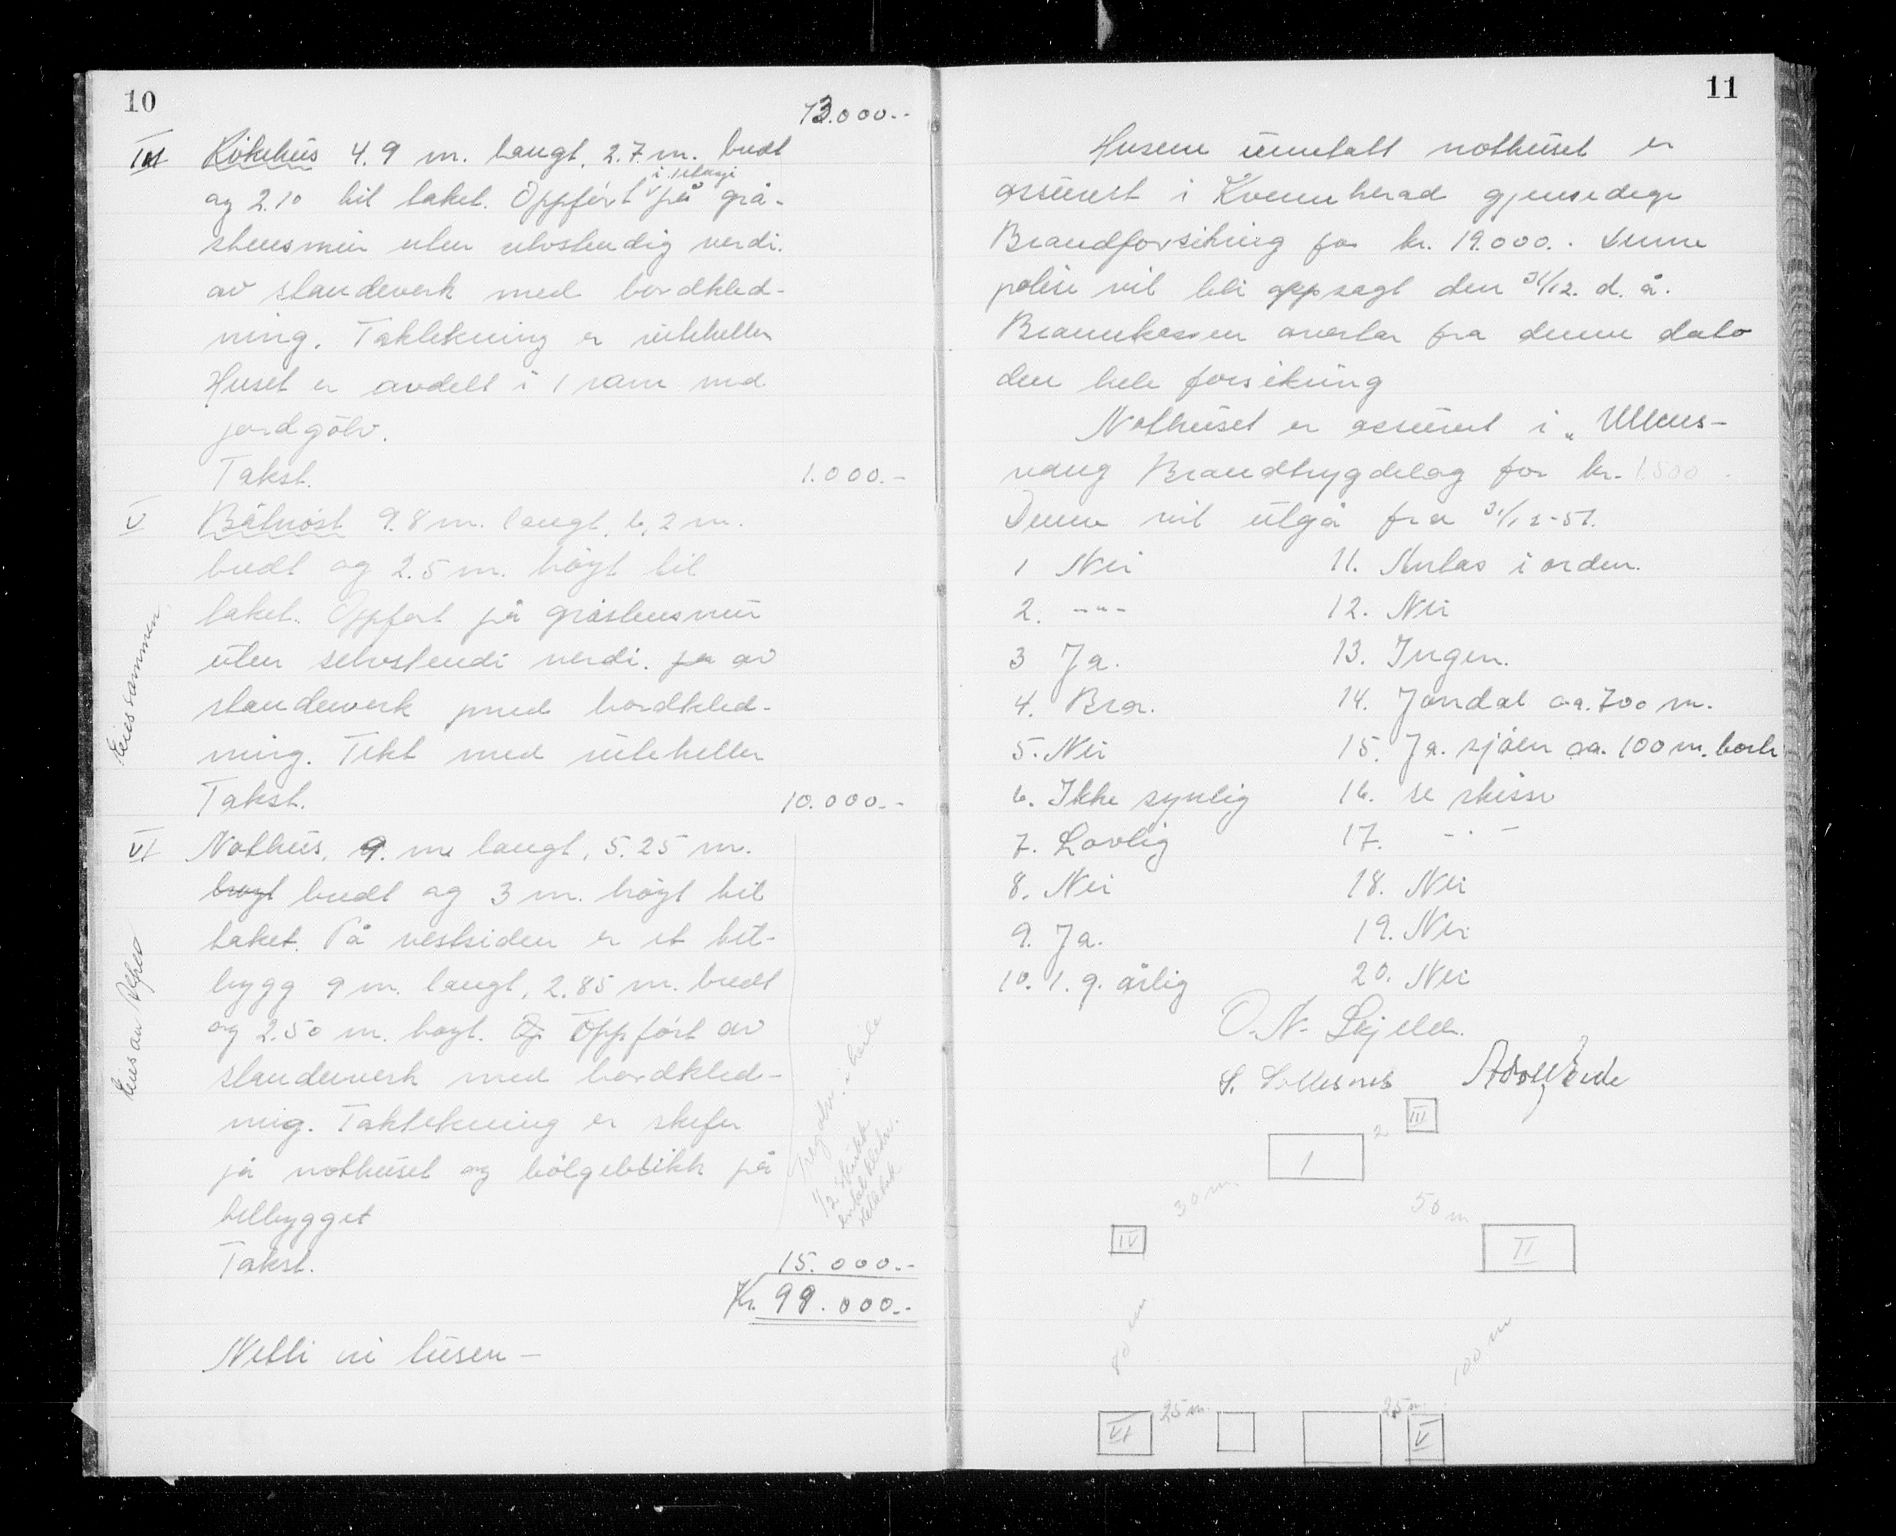 10
73.000.-
IV Kökehus 4.9 m. langt, 2.7 m. bredt
i 1 etasje
og 2.10 til taket. Oppført på grå-
stensmur uten selvstendig verdi.
av standerverk med bordkled-
ning. Taktekning er rutehelle
Huset er avdelt i 1 rom med
jordgölv.
Takst. 1.000.-
V Båtnöst 9.8 m. langt, 6,2 m.
bredt og 2.5 m. höyt til
taket. Oppfört på gråstensmur
uten selvstendi verdi. av
standerverk med bordkled-
ning. Tekt med rutehelle
Takst. 10.000.-
Eies sammen
VI Nothus, 9. m langt, 5.25 m.
höyt bredt og 3 m. höyt til
taket. På vestsiden er et til-
bygg 9 m. langt, 2.85 m. bredt
og 2.50 m. höyt. Op Oppfört av
standerverk med bordkled-
nig. Taktekning er skifer
på nothuset og bölgeblikk på
tilbygget
Takst. 15.000.-
Kr. 99.000.-
Eies av Alfred
Nitti ni tusen -
11
Husene unntatt nothuset er
assurert i Kvennherad gjensidige
Brandforsikring for kr. 19.000.- Denne
polise vil bli oppsagt den 31/12. d. å.
Brannkassen overtar fra denne dato
den hele forsikring
Nothuset er assurert i „Ullens-
vang Brandtrygdelag for kr. 1.500.-
Denne vil utgå fra 31/12-51.
1 Nei 11. Anlas i orden.
2. -"- 12. Nei
3 Ja. 13. Ingen.
4. Bra. 14. Jondal ca. 700 m.
5. Nei 15. Ja. sjöen ca. 100 m. borte
6. Ikke synlig 16. se skisse
7. Lovlig 17. -"-
8. Nei 18. Nei
9. Ja. 19. Nei
10. 1. g. årlig 20. Nei
O. N. Skjelde.
S. Sollesnes
III
2
I
30 m.
50 m
IV
II
80 m
100 m
VI
25 m.
25 m
V